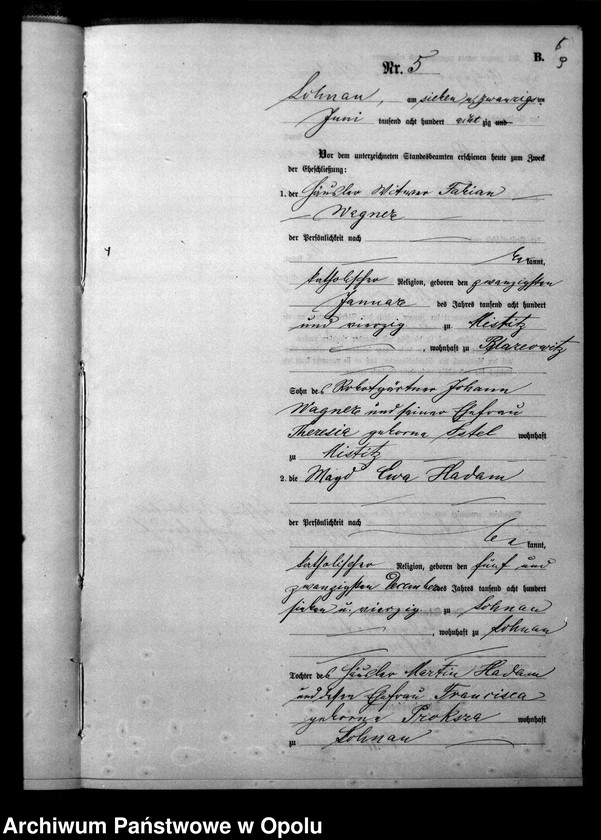 B.
Nr. 5
Lohnau, am sieben u. zwanzigsten
Juni tausend acht hundert acht zig und
Vor dem unterzeichneten Standesbeamten erschienen heute zum Zweck
der Eheschließung:
1. der Häusler Witwer Fabian
Wagner
der Persönlichkeit nach
be kannt,
katholischer Religion, geboren den zwanzigsten
Januar des Jahres tausend acht hundert
und vierzig zu Mistitz
, wohnhaft zu Blazeowitz
Sohn des Robotgärtner Johann
Wagner und seiner Ehefrau
Theresia geborne wohnhaft
zu Mistitz
2. die Magd Ewa Hadam
der Persönlichkeit nach
be kannt,
katholischer Religion, geboren den fünf und
zwanzigsten Dezember des Jahres tausend acht hundert
sieben u. vierzig zu Lohnau
, wohnhaft zu Lohnau
Tochter des Häusler Martin Hadam
und dessen Ehefrau Francisca
geborne Proksza wohnhaft
zu Lohnau
Archiwum Państwowe w Opolu